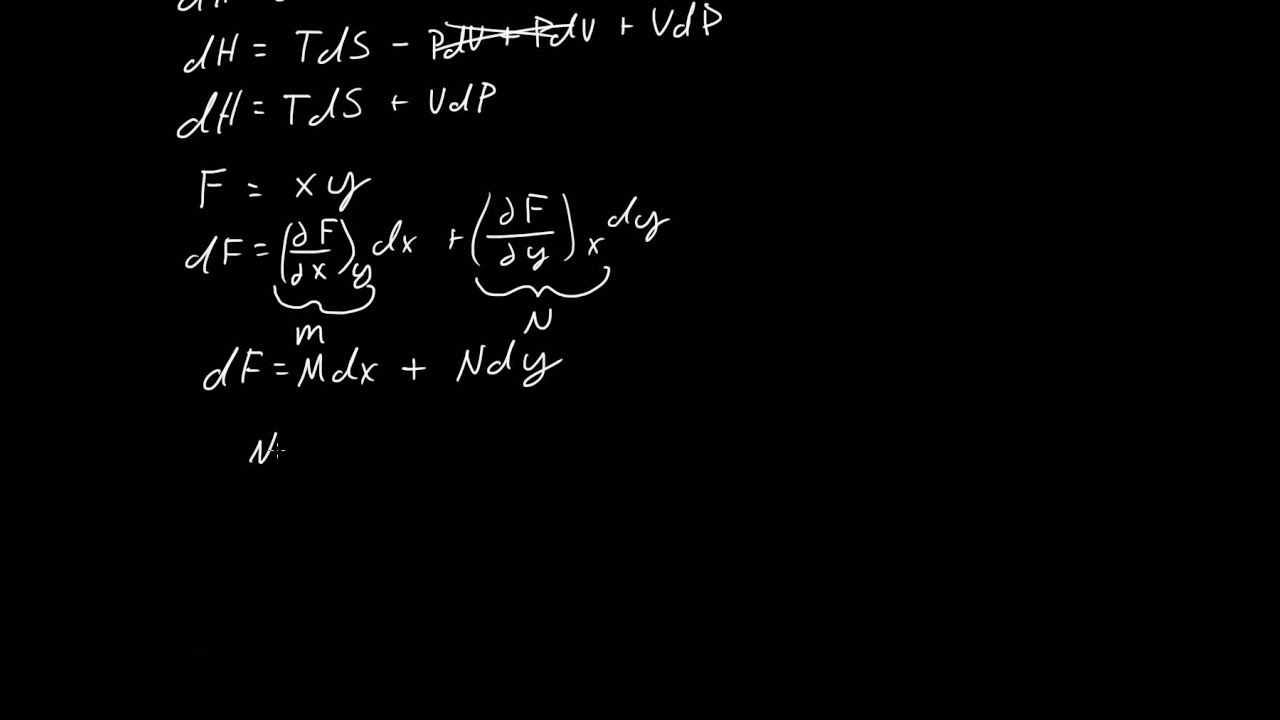 dH
dH = TdS - PdV + PdV + VdP
dH = TdS + VdP
F = xy
dF = (∂F/∂x)y dx + (∂F/∂y)x dy
m N
dF = Mdx + Ndy
N